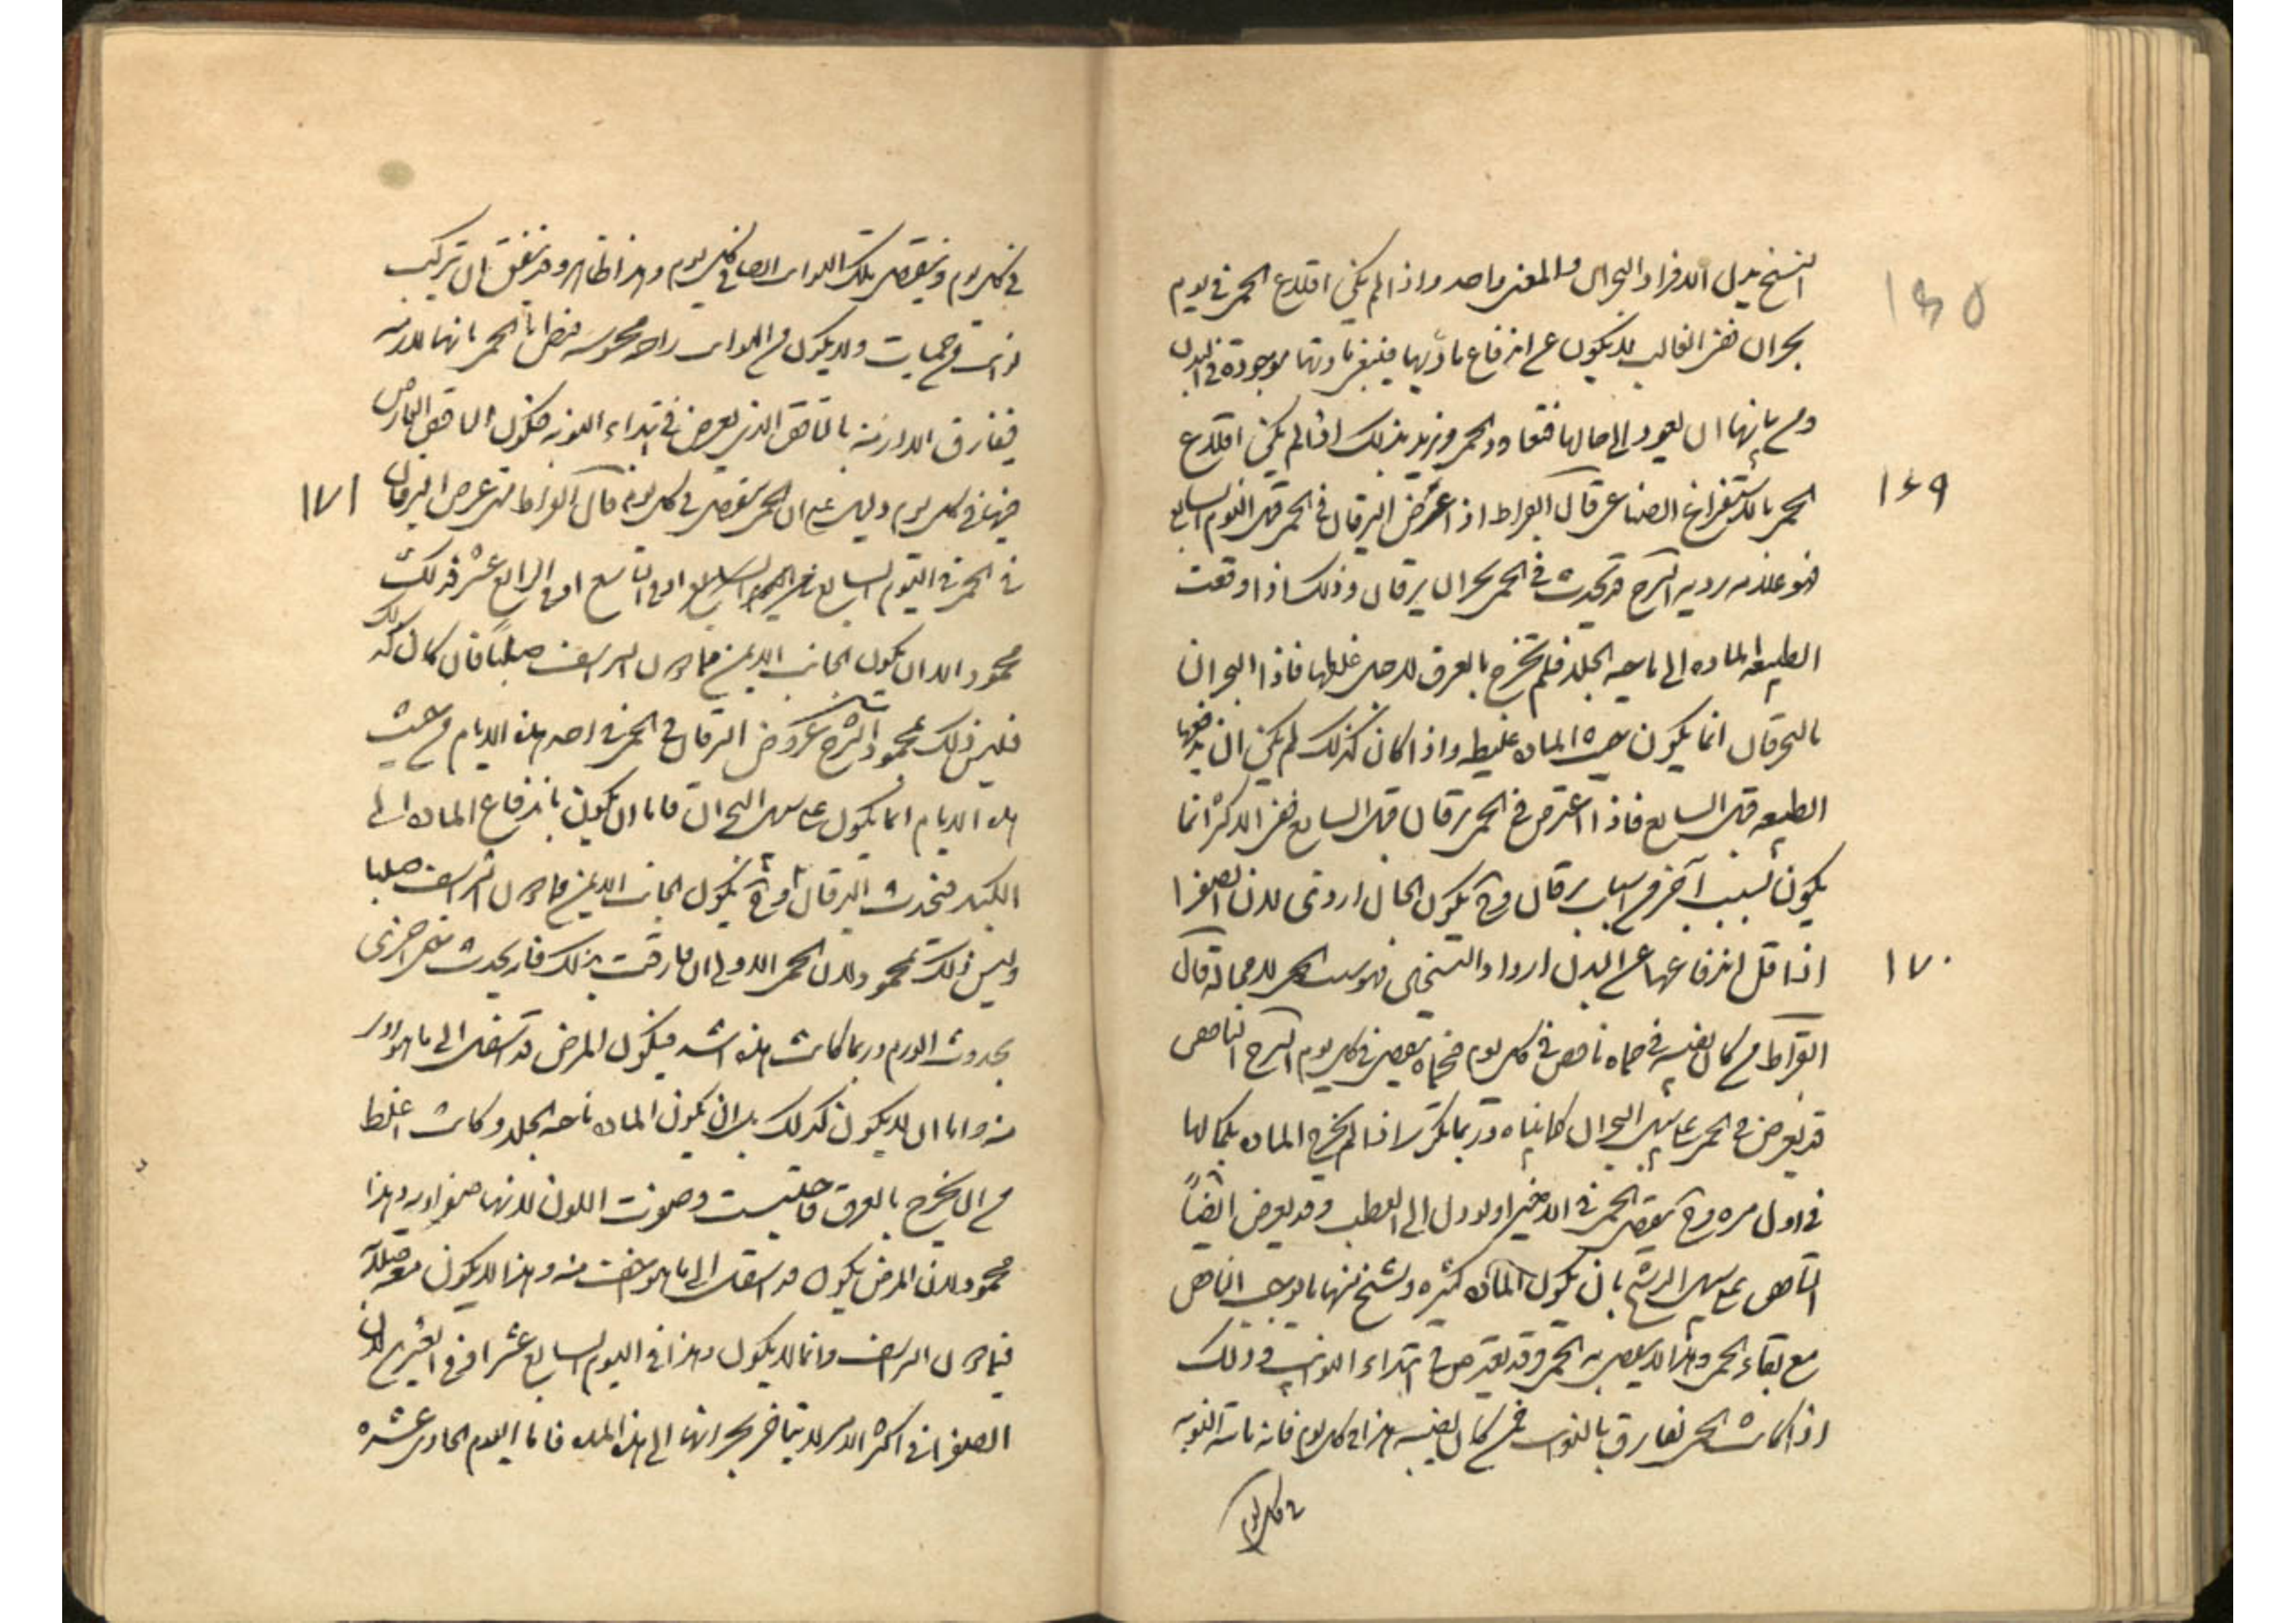 النسخ بدل الافراد البحران والمعنى واحد واذا لم يكن اقلاع الحمى في يوم
بحران ففى الغالب لا يكون عن اندفاع مادتها فينبغى مادتها موجودة في البدن
ومن شانها ان تعود الى حالها فتعاود الحمى ونريد بذلك اذا لم يكن اقلاع
١٦٩
الحمى بالاستفراغ الصناعى قال ابقراط اذا عرض اليرقان في الحمى قبل اليوم السابع
فهو علامة ردية الشرح قد تحدث في الحمى بحران يرقان وذلك اذا دفعت
الطبيعه الماده الى ناحيه الجلد فلم تخرج بالعرق لاجل غلظها فاذا البحران
باليرقان انما يكون حيث الماده غليظه واذا كان كذلك لم يكن ان يدفعها
الطبيعه قبل السابع فاذا اعترض في الحمى يرقان قبل السابع ففى الاكثر انما
يكون لسبب آخر من اسباب يرقان وح يكون الحال اردى لان الصفرا
١٧٠
اذا قل اندفاعها عن البدن ازداد التسخن فقويت الحمى لا محالة قال
ابقراط من كان يصيبه في حماه نافض في كل يوم فحماه تنقضى في كل يوم الشرح النافض
قد يعرض في الحمى على سبيل البحران كما بيناه وربما تكرر اذا لم تخرج الماده بكمالها
في اول مره وح تنقضى الحمى في الاخير اولا ول الى العطب وقد يعرض ايضاً
النافض على سبيل الرشح بان يكون المادة كثيره وترشح منها ما يوجب النافض
مع بقاء الحمى وهذا لا ينقضى به الحمى وقد يعترض في ابتداء النوايب وذلك
اذا كانت الحمى تفارق بالنوايب فمن كان يصيبه هذا في كل يوم فانه ياتيه النوبه
في كل يوم
في كل يوم وتنقضى تلك النوايب ايضا في كل يوم وهذا ظاهر وقد يتفق ان تركب
من حميات ولا يكون من النوايب راحه محسوسه فيظن بالحمى بانها لازمه
فيفارق اللازمة بالنافض الذى يعرض في ابتداء النوبه فيكون النافض العارض
١٧١
فيها في كل يوم دليل على ان الحمى تنقضى في كل يوم قال ابقراط متى عرض اليرقان
في الحمى في اليوم السابع او في التاسع او في الرابع عشر فذلك
محمود الا ان يكون الجانب الايمن مما دون الشراسيف صلباً فان كان كذلك
فليس ذلك بمحمود الشرح عروض اليرقان في الحمى في احد هذه الايام من حيث
هذه الايام انما يكون على سبيل البحران فاما ان يكون باندفاع الماده الى
الكبد فيحدث اليرقان وح يكون الجانب الايمن مما دون الشراسيف صلبا
وليس ذلك بمحمود لان الحمى الاولى ان فارقت بذلك فقد يحدث حمى اخرى
بحدوث الورم وربما كانت هذه اشد فيكون المرض قد انتقل الى ما هو اردى
منه واما ان لا يكون كذلك بل ان يكون الماده ناحيه الجلد وكانت اغلظ
من ان تخرج بالعرق فاحتبست وصفرت اللون لانها صفراويه وهذا
محمود لان المرض يكون قد انتقل الى ما هو اخف منه وهذا لا يكون معه صلابة
فيما دون الشراسيف وانما لا يكون هذا في اليوم السابع عشر او في العشرين لان
الصفرا في اكثر الامر لا يتاخر بحرانها الى هذه المده فاما اليوم الحادى عشره